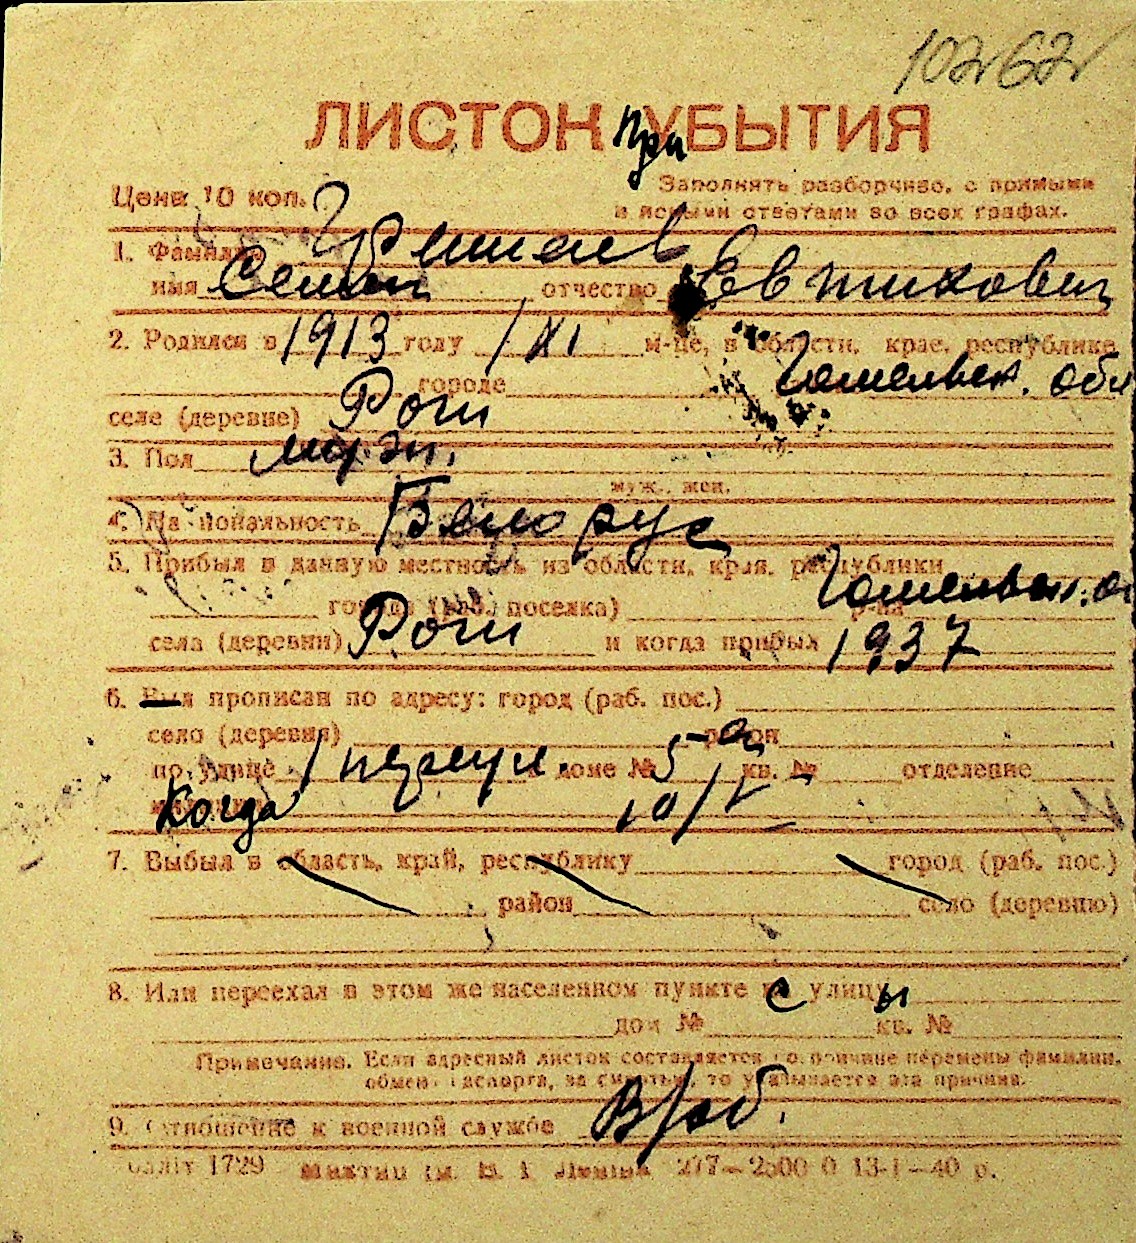 10262
ЛИСТОК При УБЫТИЯ
Цена 10 коп.
Заполнять разборчиво, с прямыми
и ясными ответами во всех графах.
1. Фамилия Гришаев
имя Семен отчество Евтихович
2. Родился в 1913 году 1/XI м-це, в области, крае, республике
городе Гомельск. обл
селе (деревне) Роги
3. Пол муж.
муж., жен.
4. Национальность Белорус
5. Прибыл в данную местность из области, края, республики
города (раб. поселка) Гомельск. об р-на
села (деревни) Роги и когда прибыл 1937
6. Был прописан по адресу: город (раб. пос.)
село (деревня) район
по улице 1 переул. доме № 5 кв. № отделение
Когда 10/V
7. Выбыл в область, край, республику город (раб. пос.)
район село (деревню)
8. Или переехал в этом же населенном пункте с улицы
дом № кв. №
Примечание. Если адресный листок составляется по причине перемены фамилии,
обмена паспорта, за смертью, то указывается эта причина.
9. Отношение к военной службе В/об.
1729 277—2500 0 13-I—40 р.